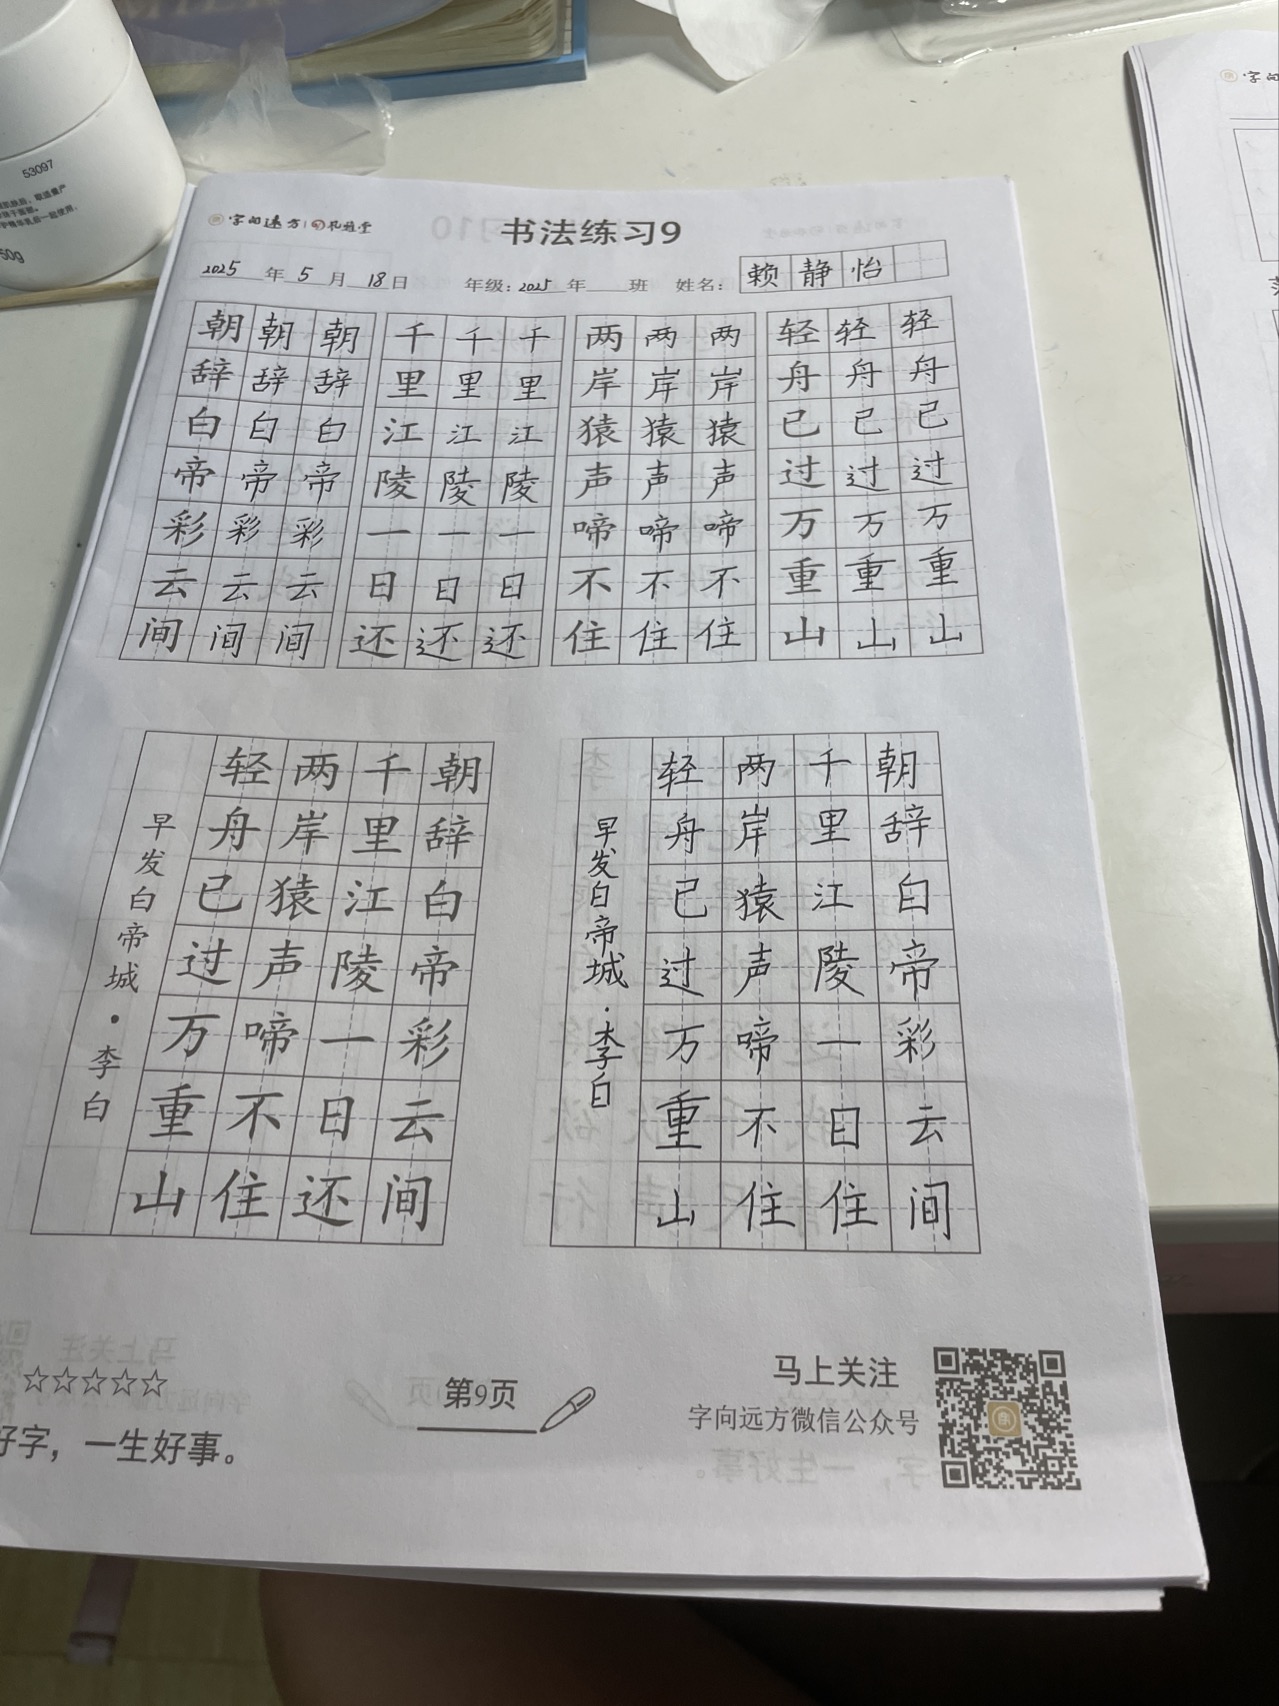 53097
50g
字向远方 礼雅堂
书法练习9
2025 年 5 月 18 日 年级: 2025 年 班 姓名: 赖静怡
朝朝朝 千千千 两两两 轻轻轻
辞辞辞 里里里 岸岸岸 舟舟舟
白白白 江江江 猿猿猿 已已已
帝帝帝 陵陵陵 声声声 过过过
彩彩彩 一一一 啼啼啼 万万万
云云云 日日日 不不不 重重重
间间间 还还还 住住住 山山山
朝辞白帝彩云间
千里江陵一日还
两岸猿声啼不住
轻舟已过万重山
早发白帝城·李白
朝辞白帝彩云间
千里江陵一日住
两岸猿声啼不住
轻舟已过万重山
早发白帝城·李白
☆☆☆☆☆
好字，一生好事。
第9页
马上关注
字向远方微信公众号
字向